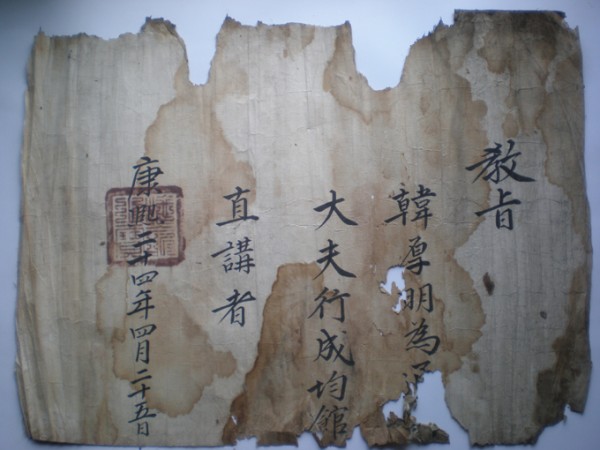 敎旨
韓厚明為通
大夫行成均館
直講者
康熙二十四年四月二十五日